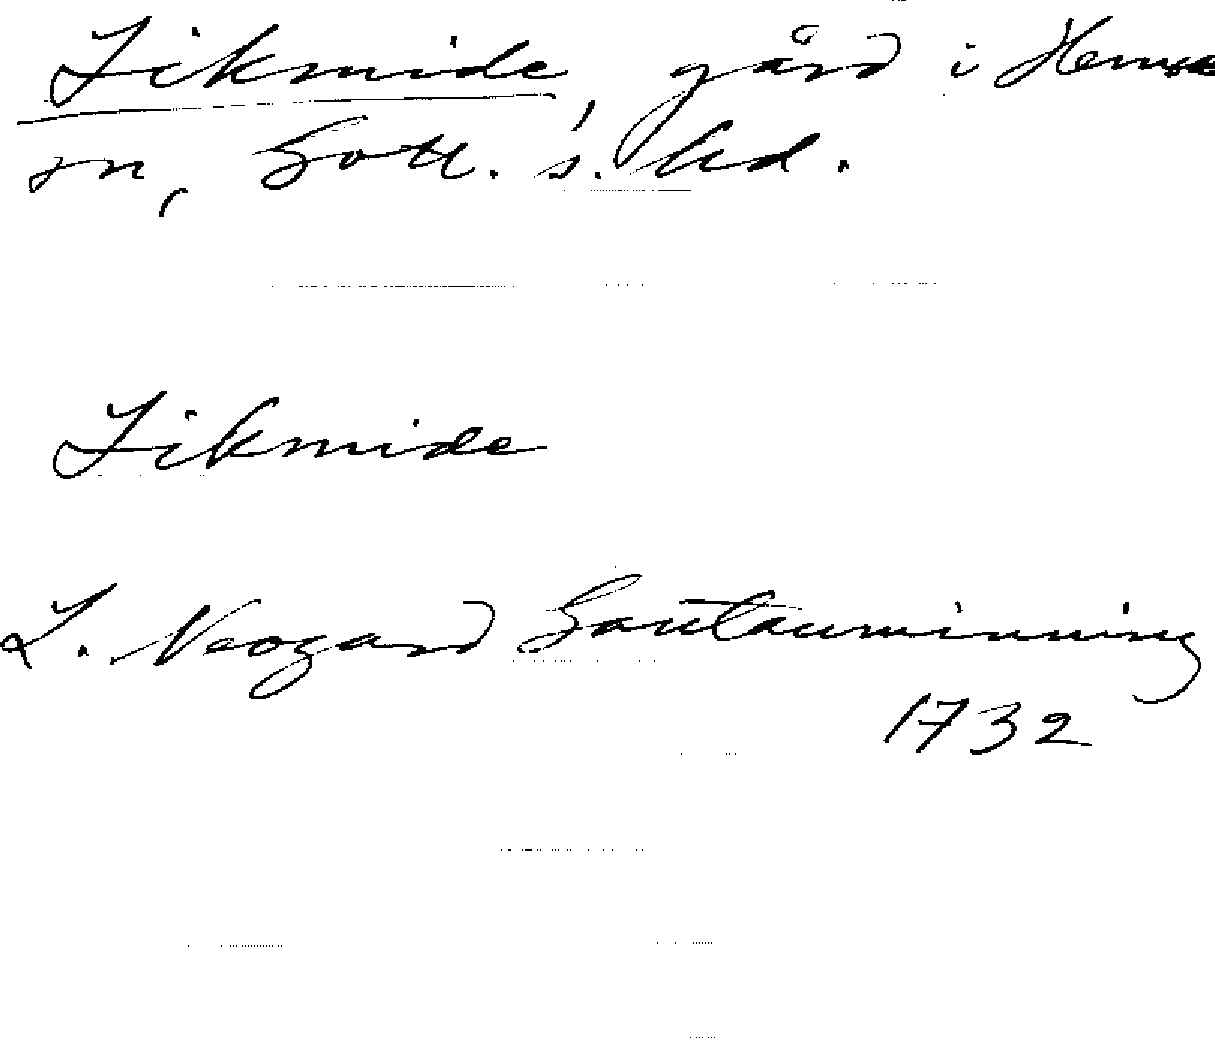 Likmide, gård i Hemse
sn, Gotl. s. hd.
Likmide
L. Neogard Gautauminning
1732